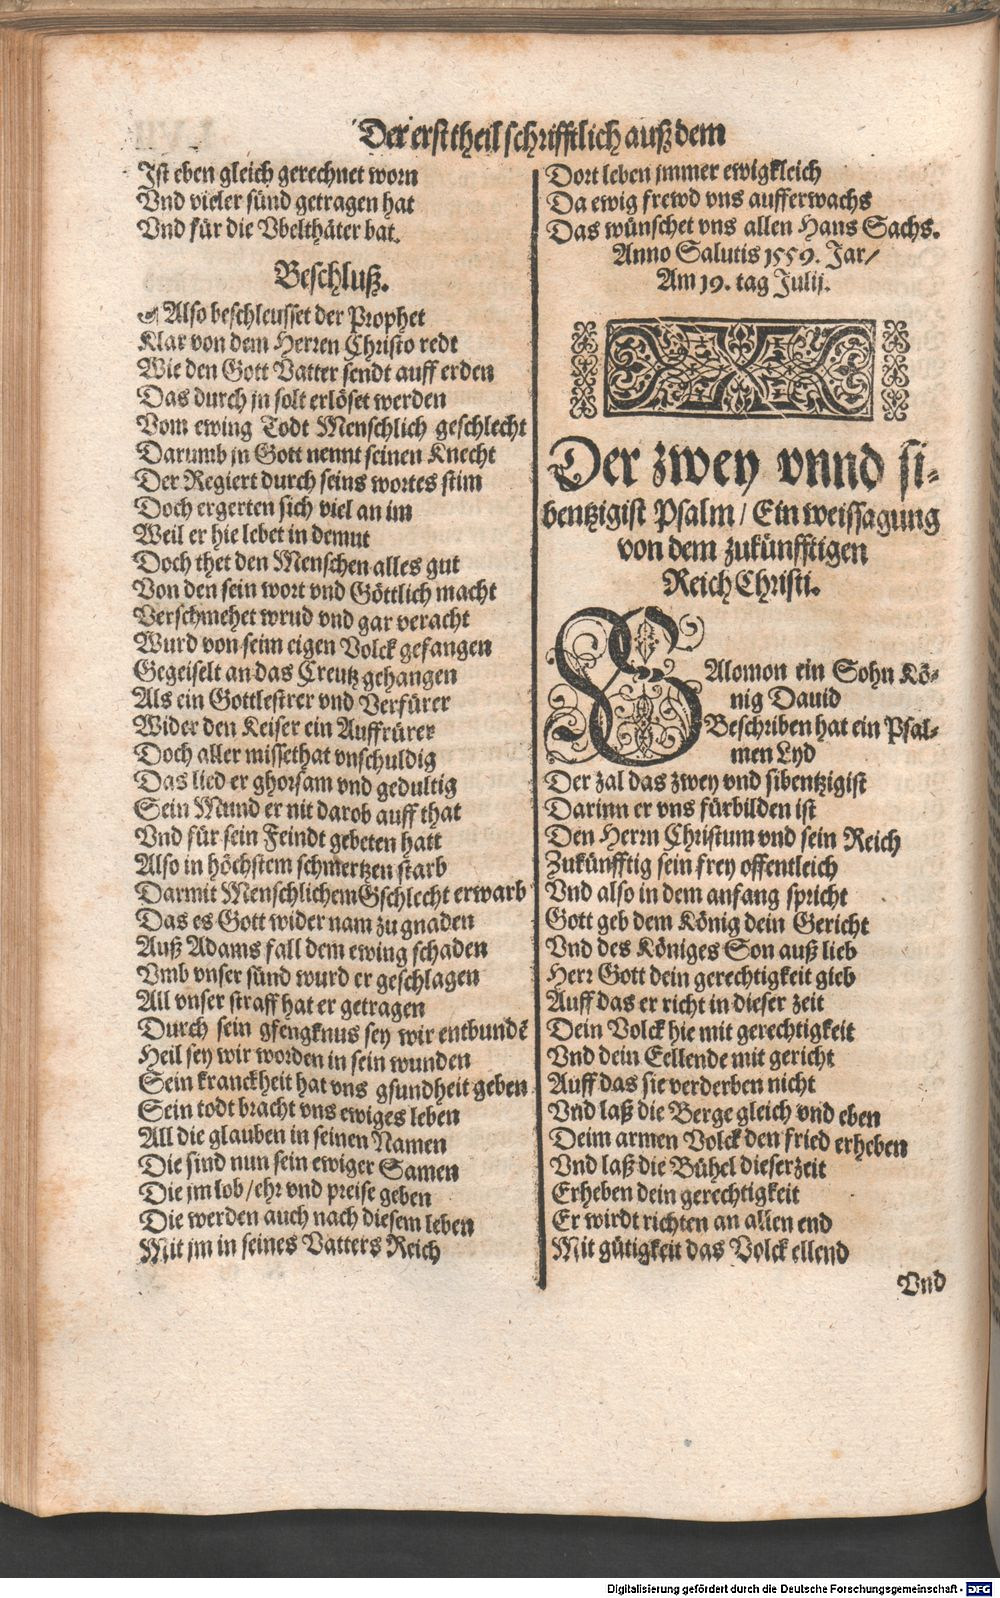 Der erst theil schrifftlich auß dem
Ist eben gleich gerechnet worn
Vnd vieler sünd getragen hat
Vnd für die Vbelthäter bat.
Beschluß.
☙ Also beschleusset der Prophet
Klar von dem Herren Christo redt
Wie den Gott Vatter sendt auff erden
Das durch jn solt erlöset werden
Vom ewing Todt Menschlich geschlecht
Darumb jn Gott nennt seinen Knecht
Der Regiert durch seins wortes stim
Doch ergerten sich viel an im
Weil er hie lebet in demut
Doch thet den Menschen alles gut
Von den sein wort vnd Göttlich macht
Verschmehet wrud vnd gar veracht
Wurd von seim eigen Volck gefangen
Gegeiselt an das Creutz gehangen
Als ein Gottlestrer vnd Verfürer
Wider den Keiser ein Auffrürer
Doch aller missethat vnschuldig
Das lied er ghorsam vnd gedultig
Sein Mund er nit darob auff that
Vnd für sein Feindt gebeten hatt
Also in höchstem schmertzen starb
Darmit Menschlichem Gschlecht erwarb
Das es Gott wider nam zu gnaden
Auß Adams fall dem ewing schaden
Vmb vnser sünd wurd er geschlagen
All vnser straff hat er getragen
Durch sein gfengknus sey wir entbundẽ
Heil sey wir worden in sein wunden
Sein kranckheit hat vns gsundheit geben
Sein todt bracht vns ewiges leben
All die glauben in seinen Namen
Die sind nun sein ewiger Samen
Die jm lob/ehr vnd preise geben
Die werden auch nach diesem leben
Mit jm in seines Vatters Reich
Dort leben jmmer ewigkleich
Da ewig frewd vns aufferwachs
Das wünschet vns allen Hans Sachs.
Anno Salutis 1559. Jar/
Am 19. tag Julij.
Der zwey vnnd si-
bentzigist Psalm/ Ein weissagung
von dem zukünfftigen
Reich Christi.
SAlomon ein Sohn Kö-
nig Dauid
Beschriben hat ein Psal-
men Lyd
Der zal das zwey vnd sibentzigist
Darinn er vns fürbilden ist
Den Herrn Christum vnd sein Reich
Zukünfftig sein frey offentleich
Vnd also in dem anfang spricht
Gott geb dem König dein Gericht
Vnd des Königes Son auß lieb
Herr Gott dein gerechtigkeit gieb
Auff das er richt in dieser zeit
Dein Volck hie mit gerechtigkeit
Vnd dein Eellende mit gericht
Auff das sie verderben nicht
Vnd laß die Berge gleich vnd eben
Deim armen Volck den fried erheben
Vnd laß die Bühel dieser zeit
Erheben dein gerechtigkeit
Er wirdt richten an allen end
Mit gütigkeit das Volck ellend
Vnd
Digitalisierung gefördert durch die Deutsche Forschungsgemeinschaft - DFG